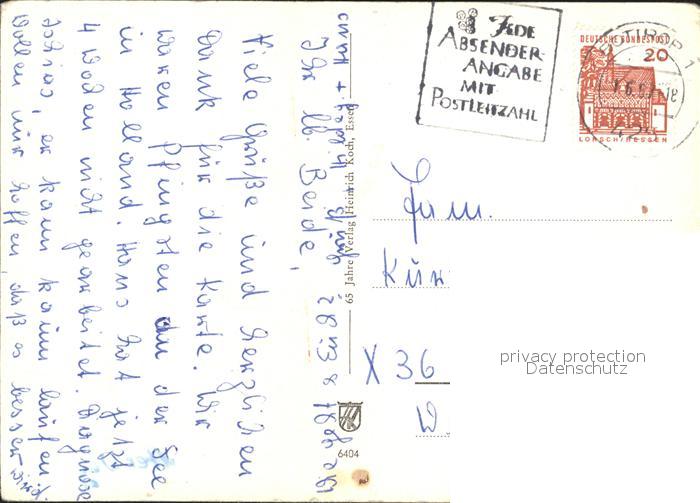 Ihr lb. Beide,
Viele Grüße und herzlichen
Dank für die Karte. Wir
waren Pfingsten an der See
in Holland. Hans hat jetzt
4 Wochen nicht gearbeitet. Diagnose
Ischias, er kann kaum laufen.
Wollen wir hoffen, daß es besser wird.
65 Jahre Verlag Heinrich Koch, Essen
6404
JEDE
ABSENDER-
ANGABE
MIT
POSTLEITZAHL
DEUTSCHE BUNDESPOST
20
LORSCH/HESSEN
Fam.
X 36
W
privacy protection
Datenschutz